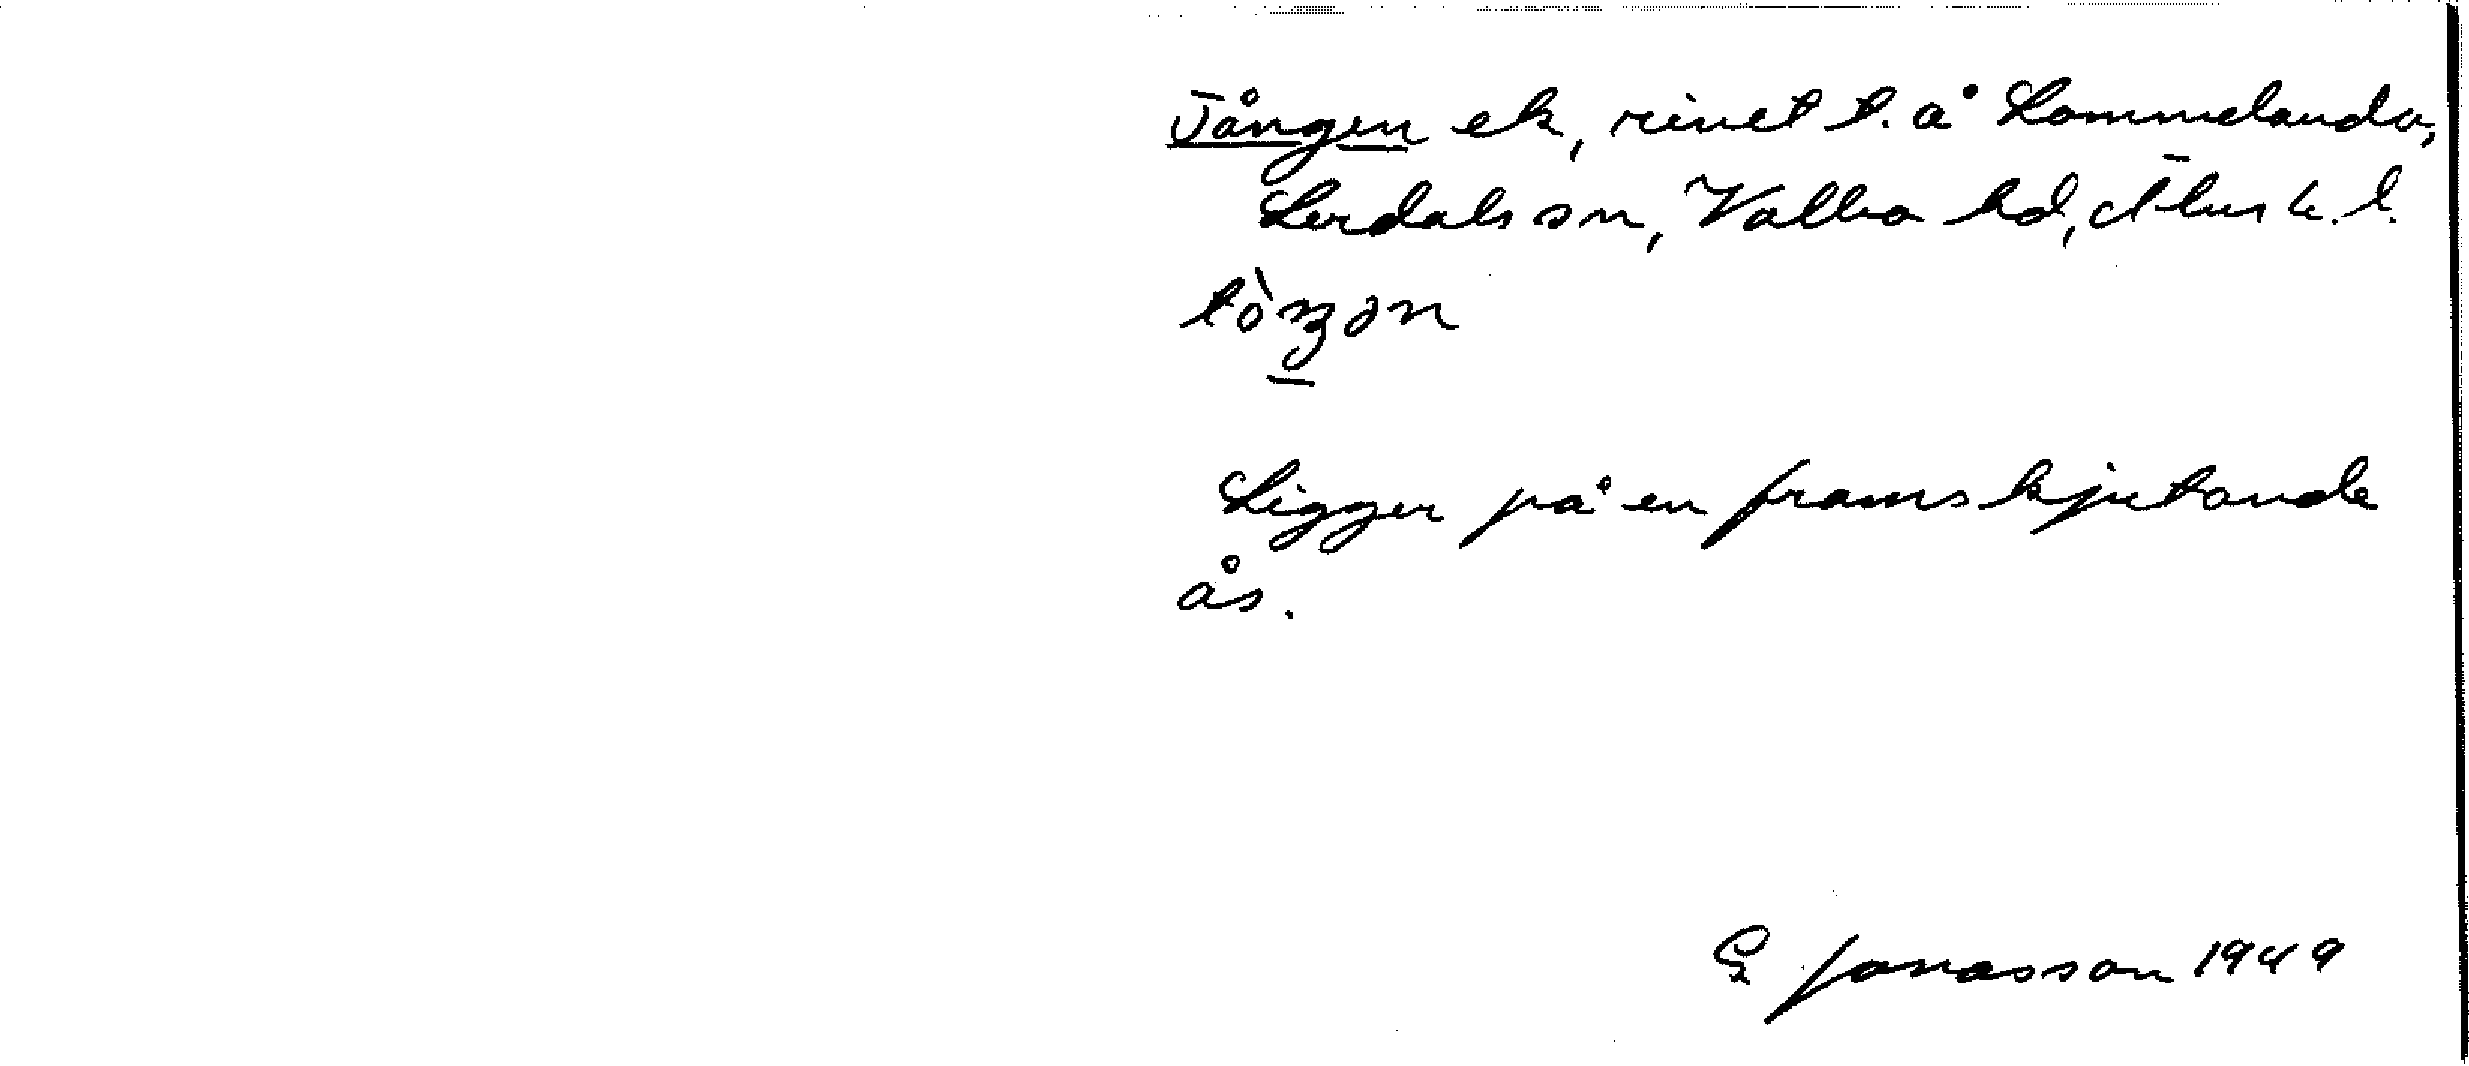 Tången ek, rivet t. å Lommelanda,
Lerdals sn, Valbo hd, Älvsb. l.
tòŋən
Ligger på en framskjutande
ås.
E Jonasson 1949